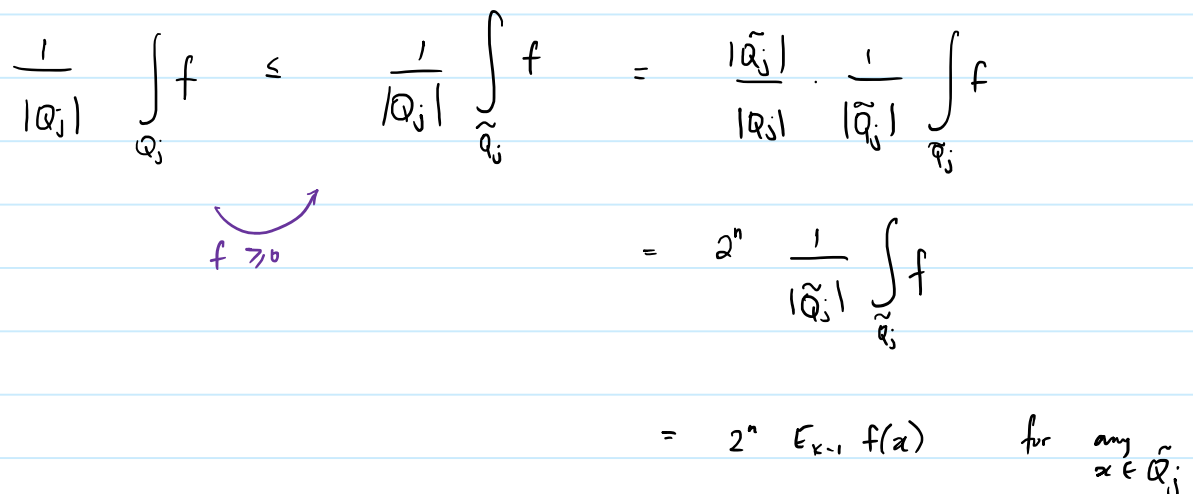 1/|Qj| ∫_{Qj} f ≤ 1/|Qj| ∫_{Q̃j} f = |Q̃j|/|Qj| · 1/|Q̃j| ∫_{Q̃j} f
f ≥ 0
= 2ⁿ 1/|Q̃j| ∫_{Q̃j} f
= 2ⁿ E_{k-1} f(x) for any x ∈ Q̃j